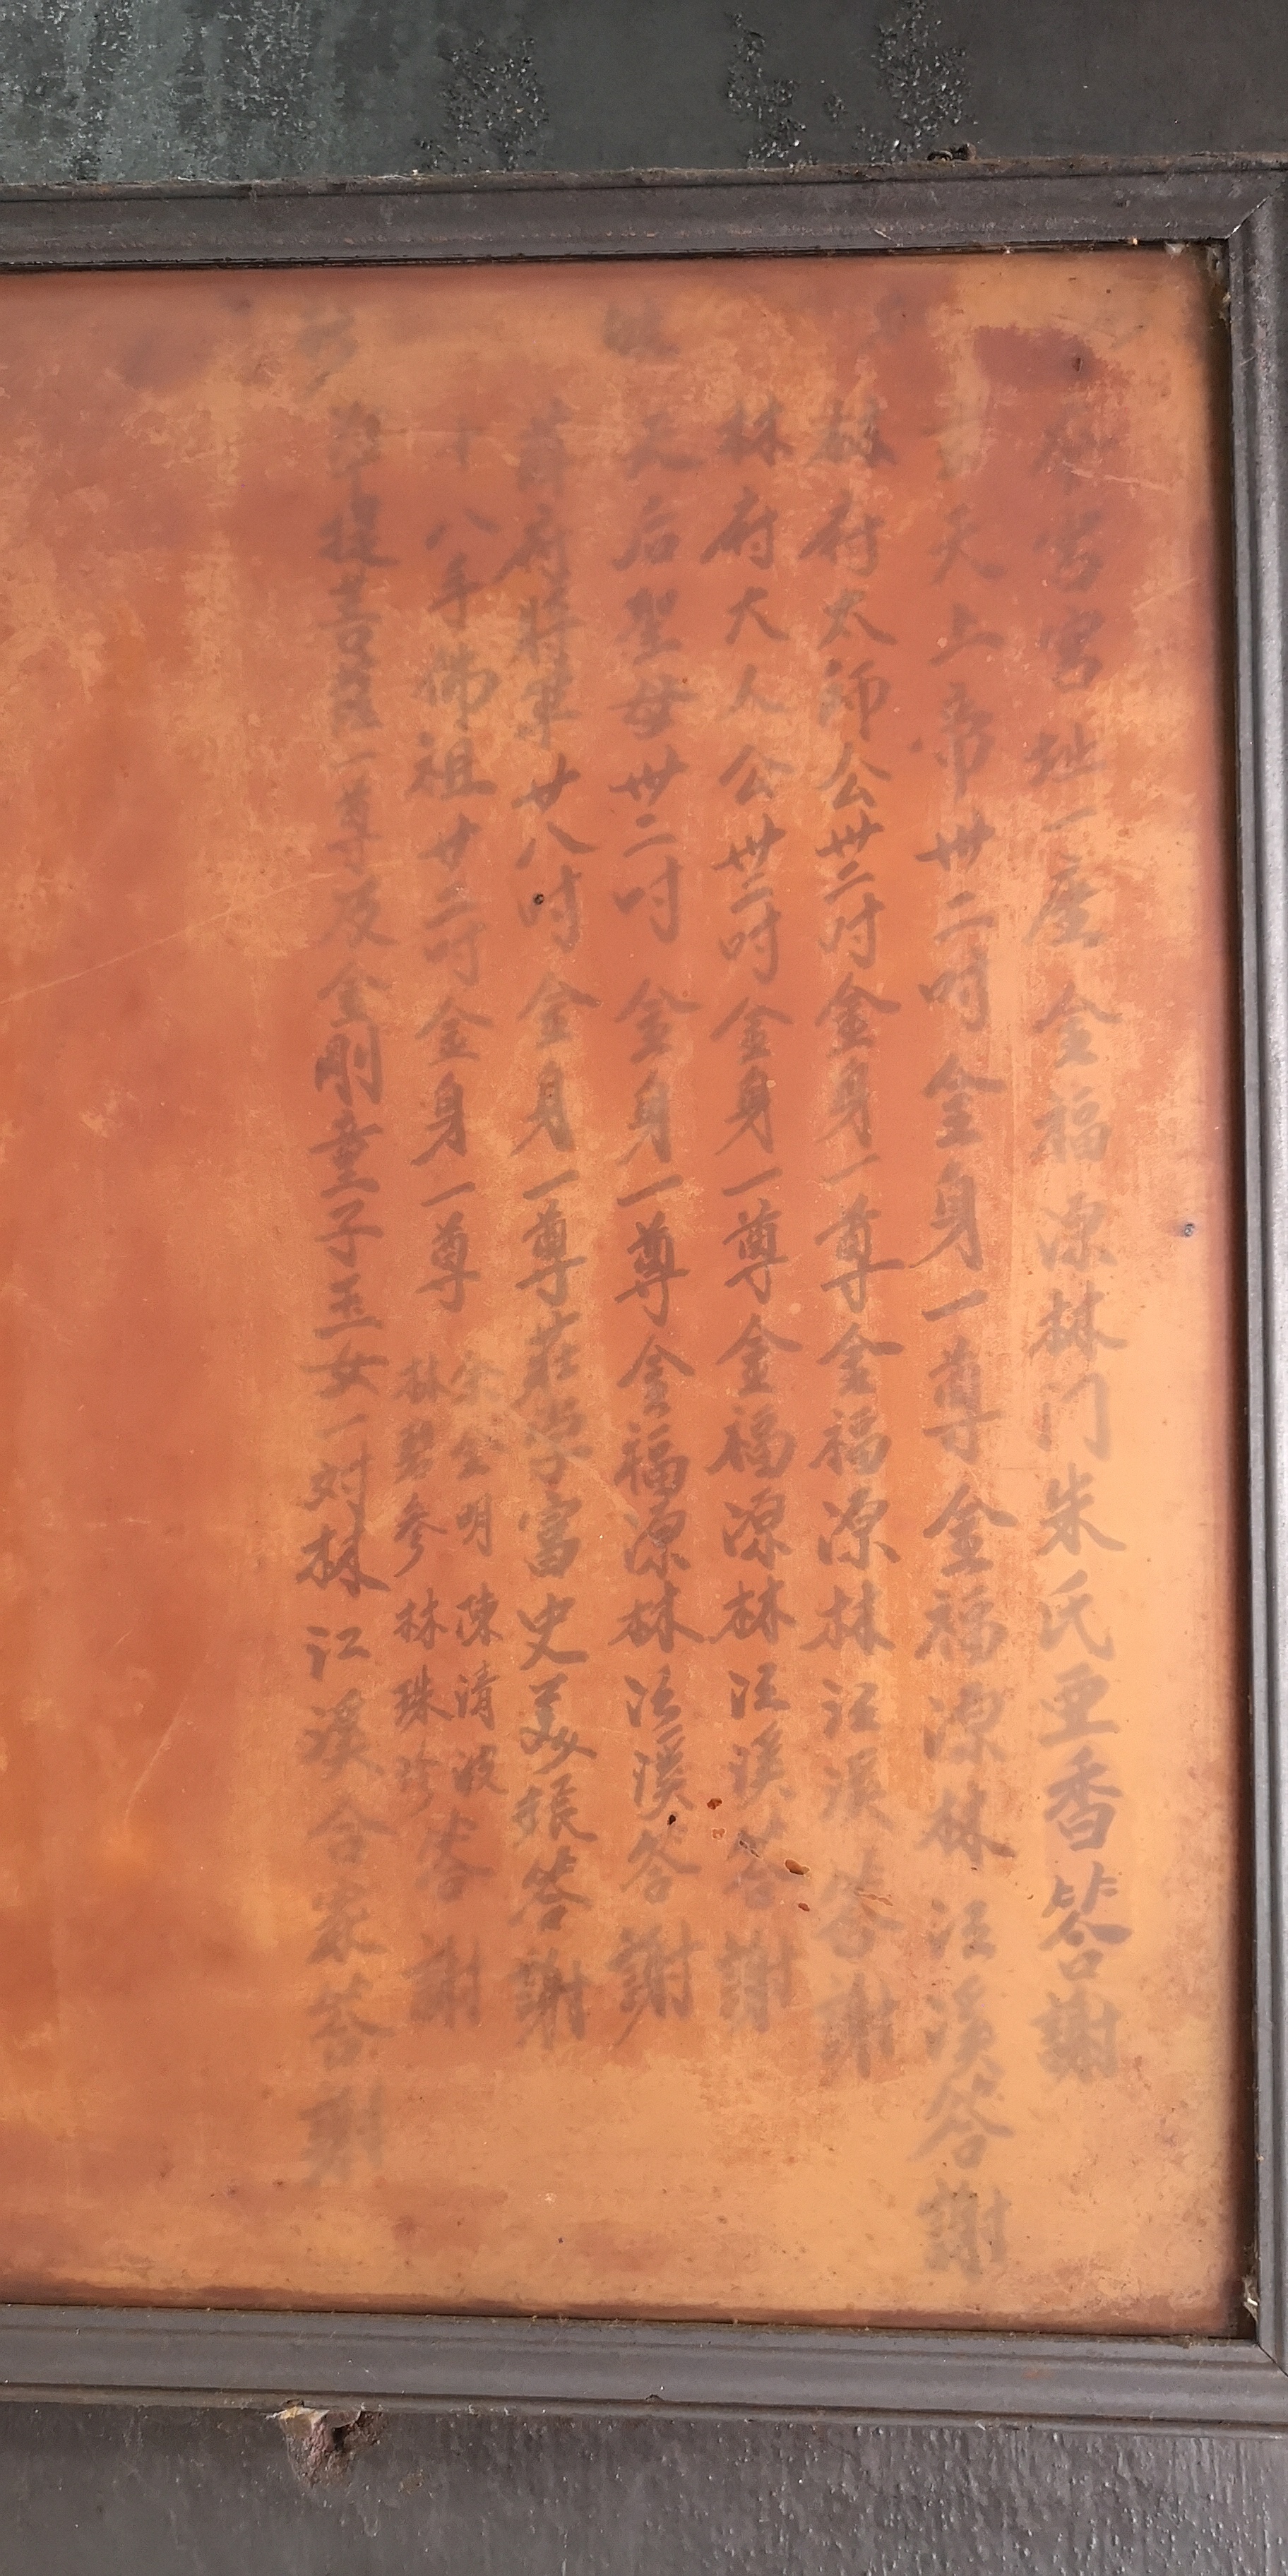 宮址一座金福源林門朱氏亜香答謝
天上帝卅二吋金身一尊金福源林江溪答謝
林府太師公卅二吋金身一尊金福源林江溪答謝
林府大人公卅二吋金身一尊金福源林江溪答謝
天后聖母卅二吋金身一尊金福源林江溪答謝
府將軍廿八吋金身一尊莊学富史美銀答謝
十八手佛祖廿二吋金身一尊余金明陳清波林碧参林珠珍答謝
提菩薩一尊及金剛童子玉女一对林江溪合家答謝